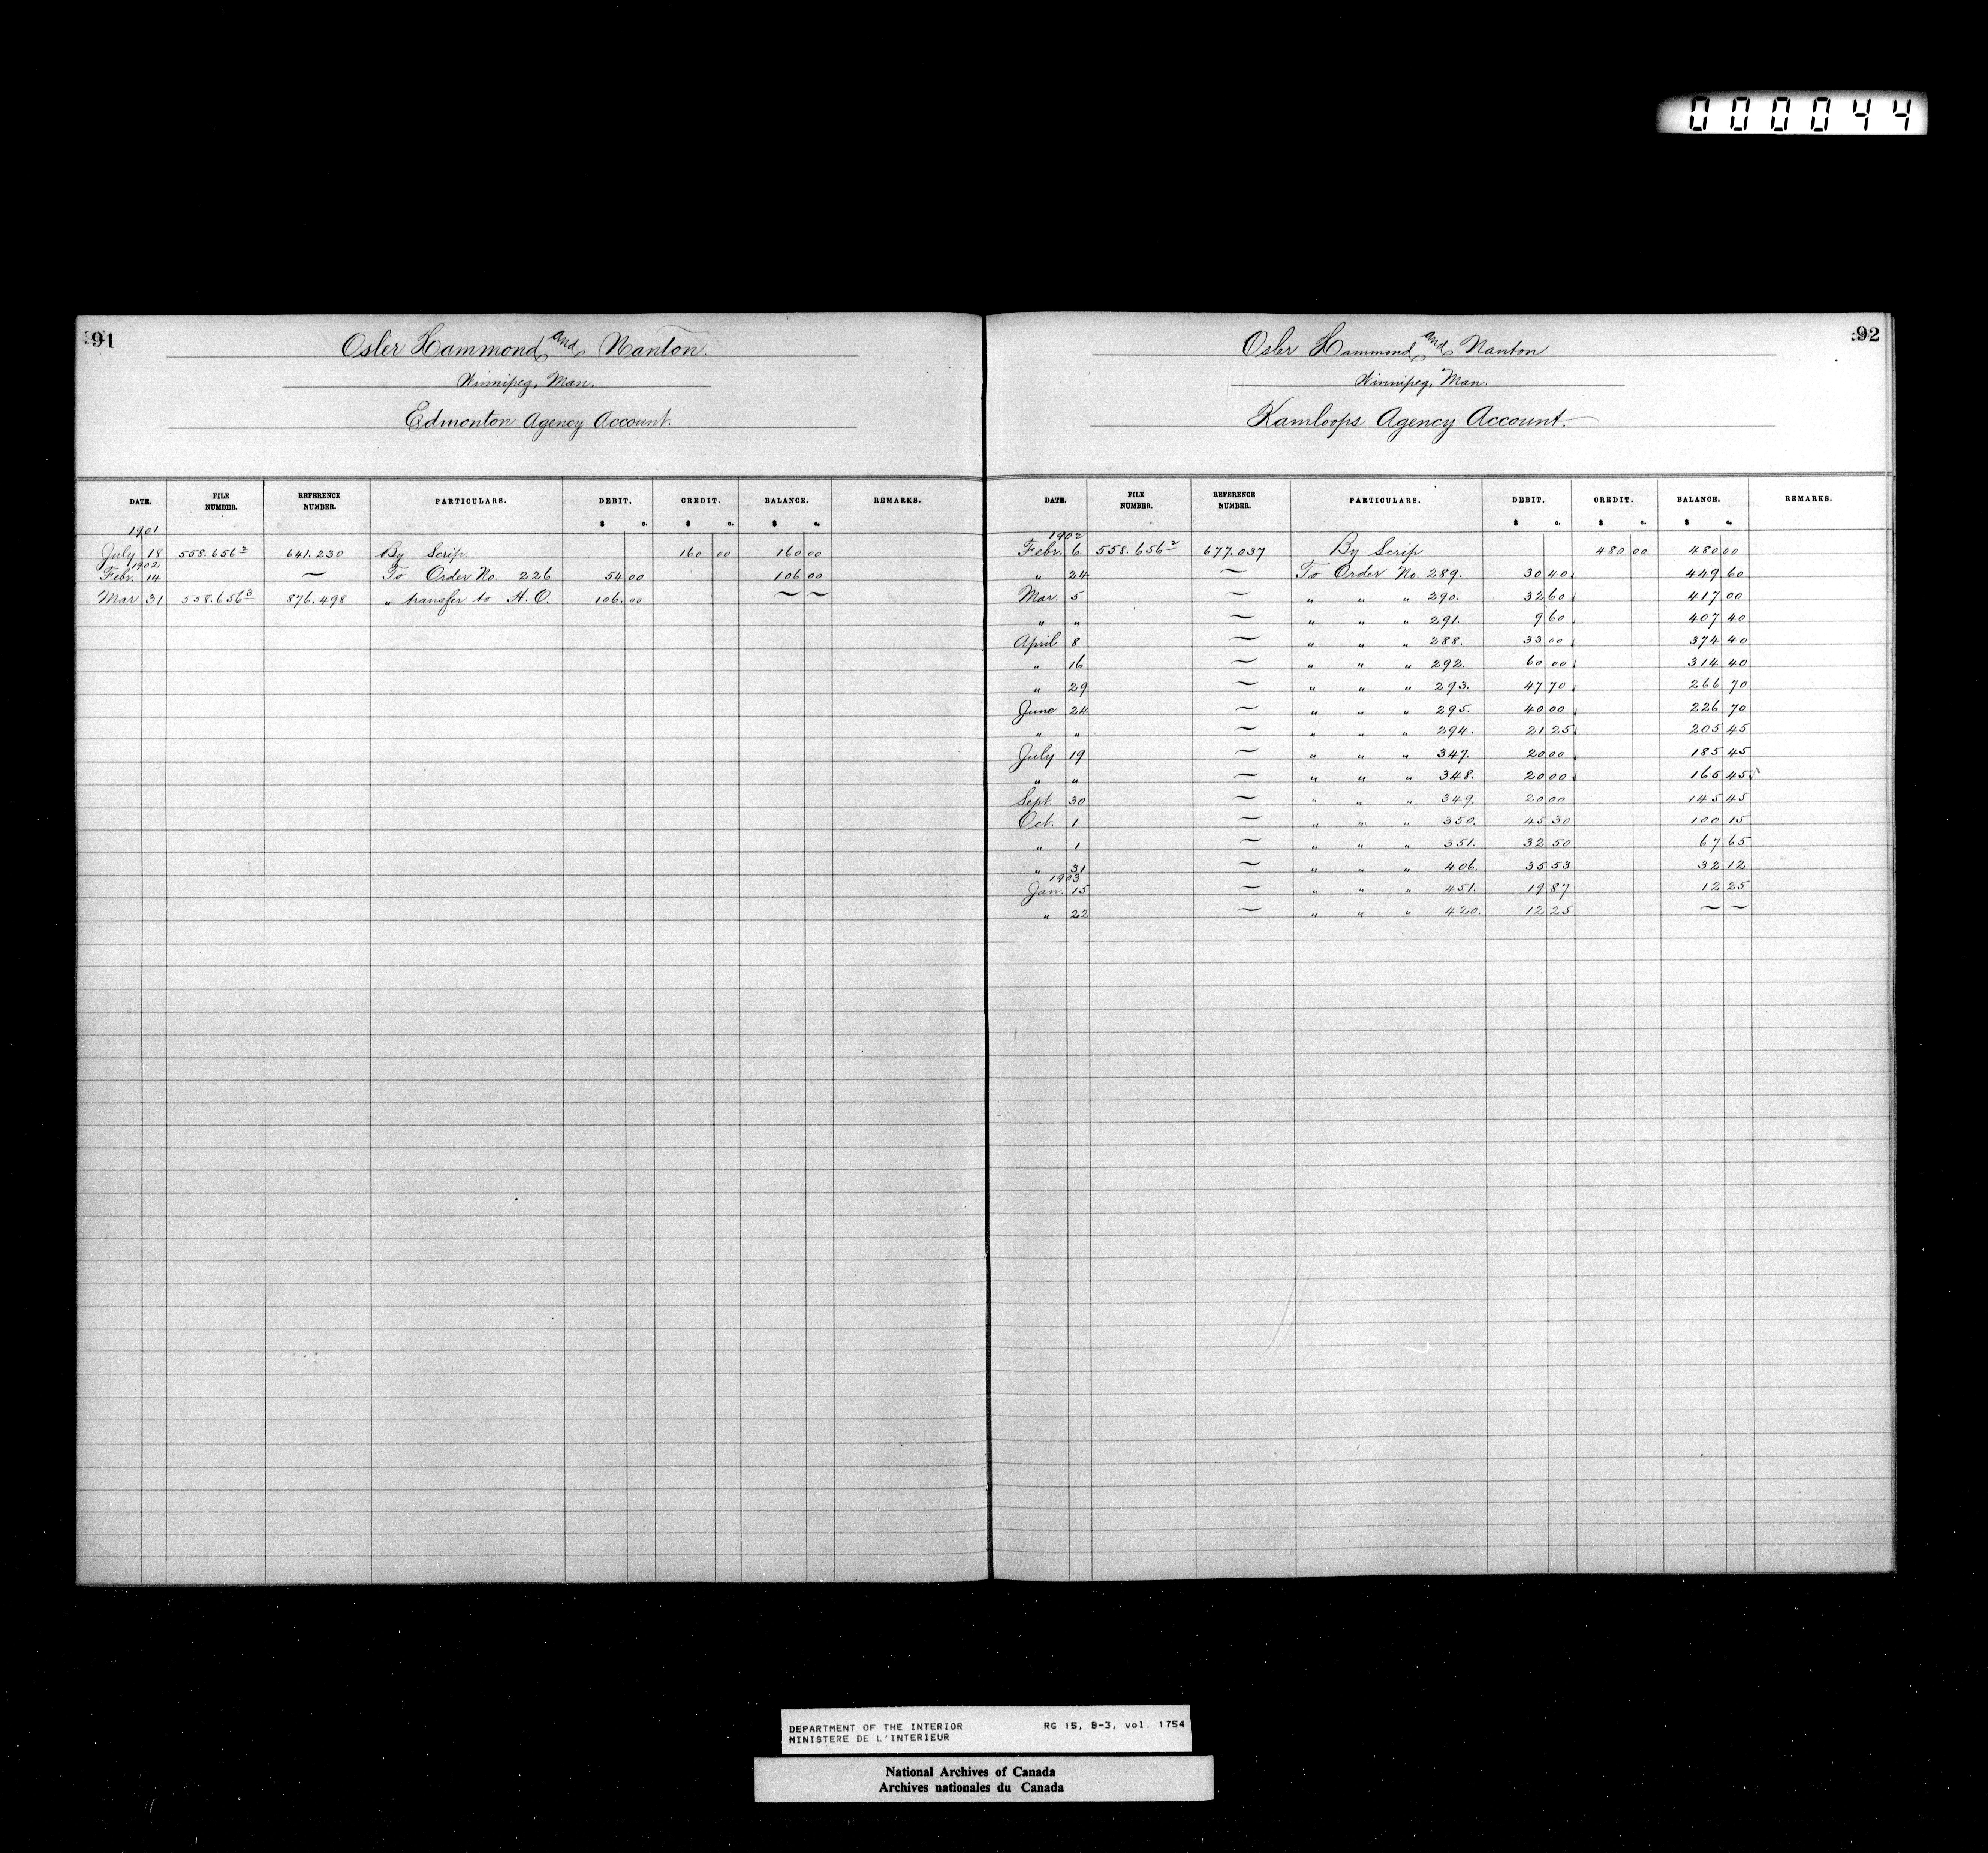 000044
91
Osler Hammond and Nanton.
Winnipeg, Man.
Edmonton Agency Account.
DATE. FILE NUMBER. REFERENCE NUMBER. PARTICULARS. DEBIT. CREDIT. BALANCE. REMARKS.
$ c. $ c. $ c.
1901
July 18 558.656² 641.230 By Scrip 160 00 160 00
1902
Febr. 14 ~ To Order No. 226 54 00 106 00
Mar 31 558.656³ 876.498 " transfer to H.O. 106.00 ~ ~
92
Osler Hammond and Nanton
Winnipeg, Man.
Kamloops Agency Account.
DATE. FILE NUMBER. REFERENCE NUMBER. PARTICULARS. DEBIT. CREDIT. BALANCE. REMARKS.
$ c. $ c. $ c.
1902
Febr. 6 558.656² 677.037 By Scrip 480 00 480 00
" 24 ~ To Order No. 289. 30 40 449 60
Mar. 5 ~ " " " 290. 32 60 417 00
" " ~ " " " 291. 9 60 407 40
April 8 ~ " " " 288. 33 00 374 40
" 16 ~ " " " 292. 60 00 314 40
" 29 ~ " " " 293. 47 70 266 70
June 24 ~ " " " 295. 40 00 226 70
" " ~ " " " 294. 21 25 205 45
July 19 ~ " " " 347. 20 00 185 45
" " ~ " " " 348. 20 00 165 45
Sept. 30 ~ " " " 349. 20 00 145 45
Oct. 1 ~ " " " 350. 45 30 100 15
" 1 ~ " " " 351. 32 50 67 65
" 31 ~ " " " 406. 35 53 32 12
1903
Jan. 15 ~ " " " 451. 19 87 12 25
" 22 ~ " " " 420. 12 25 ~ ~
DEPARTMENT OF THE INTERIOR RG 15, B-3, vol. 1754
MINISTERE DE L'INTERIEUR
National Archives of Canada
Archives nationales du Canada